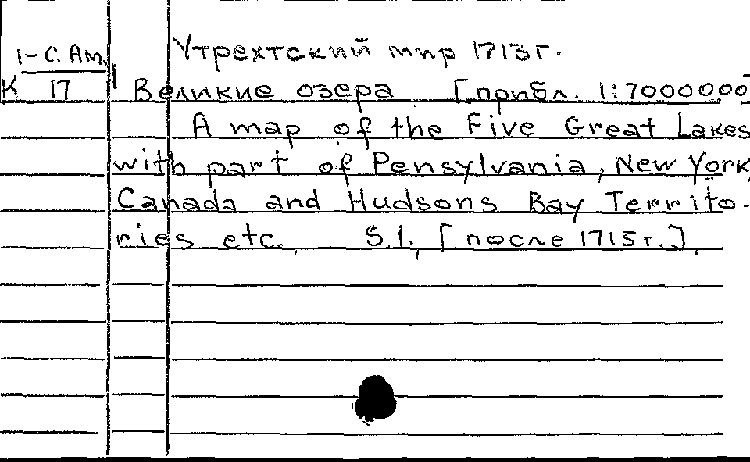 1-С. Ам.
Утрехтский мир 1713г.
К 17
Великие озера [прибл. 1:7000000
A map of the Five Great Lakes
with part of Pensylvania, New York,
Canada and Hudsons Bay Territo-
ries etc. S.l., [после 1715г.],